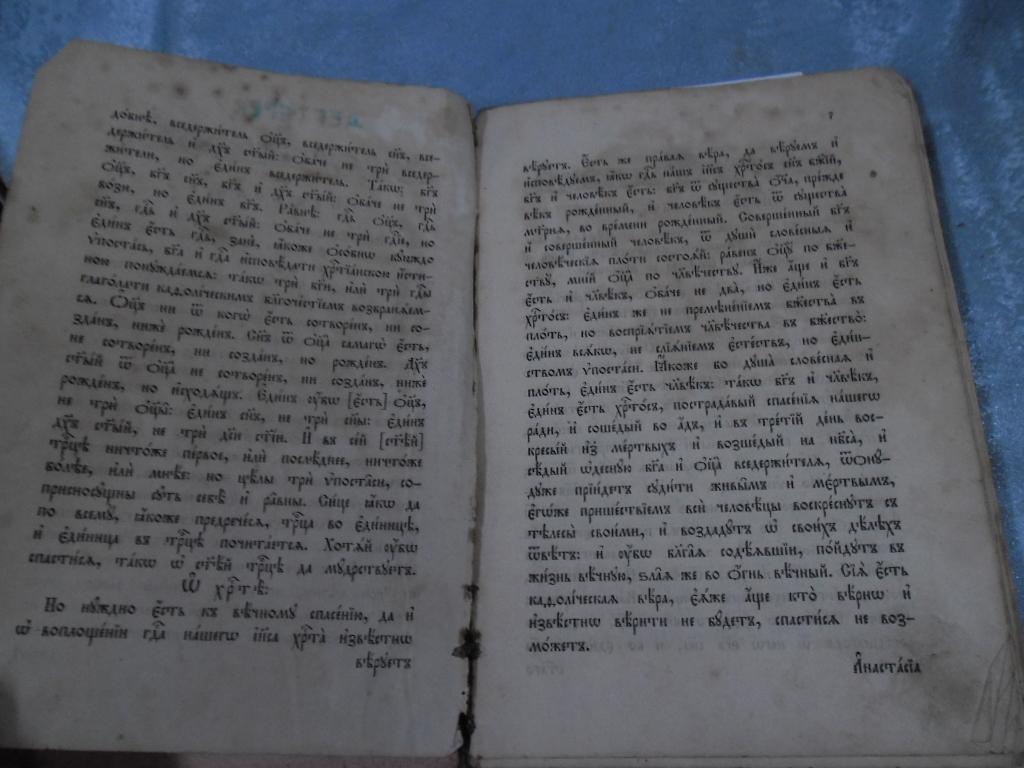 до́бнѣ, вседержи́тель ѻ҆ц҃ъ, вседержи́тель сн҃ъ, все-
держи́тель и҆ дх҃ъ ст҃ы́й: ѻ҆ба́че не трѝ вседер-
жи́тели, но є҆ди́нъ вседержи́тель. Та́кѡ: бг҃ъ
ѻ҆ц҃ъ, бг҃ъ сн҃ъ, бг҃ъ и҆ дх҃ъ ст҃ы́й: ѻ҆ба́че не трѝ
бо́зи, но є҆ди́нъ бг҃ъ. Ра́внѣ: гд҇ь ѻ҆ц҃ъ, гд҇ь
сн҃ъ, гд҇ь и҆ дх҃ъ ст҃ы́й: ѻ҆ба́че не трѝ гд҇іе, но
є҆ди́нъ є҆́сть гд҇ь, занѐ, ꙗ҆́коже ѻ҆со́бнѡ ку́юждо
ѵ҆поста́сь, бг҃а и҆ гд҇а и҆сповѣ́дати хрⷭ҇тїа́нскою и҆́сти-
ною понужда́емсѧ: та́кѡ трѝ бг҃и, и҆лѝ трѝ гд҇ы
глаго́лати каѳоли́ческимъ благоче́стїемъ возбранѧ́ем-
сѧ. Ѻ҆ц҃ъ ни ѿ когѡ̀ є҆́сть сотворе́нъ, ни со́-
зданъ, нижѐ рожде́нъ. Сн҃ъ ѿ ѻ҆ц҃а̀ самагѡ̀ є҆́сть,
не сотворе́нъ, ни со́зданъ, но рожде́нъ. Дх҃ъ
ст҃ы́й ѿ ѻ҆ц҃а̀ не сотворе́нъ, ни со́зданъ, нижѐ
рожде́нъ, но и҆сходѧ́щъ. Є҆ди́нъ ᲂу҆́бѡ [є҆́сть] ѻ҆ц҃ъ,
не трѝ ѻ҆ц҃ы̀: є҆ди́нъ сн҃ъ, не трѝ сн҃ы: є҆ди́нъ
дх҃ъ ст҃ы́й, не трѝ дс҃и ст҃і́и. И҆ въ се́й [ст҃ѣ́й]
трⷪ҇цѣ ничто́же пе́рвое, и҆лѝ послѣ́днее, ничто́же
бо́лѣе, и҆лѝ мне́е: но цѣ́лы трѝ ѵ҆поста̑си, со-
присносу́щны су́ть себѣ̀ и҆ ра́вны. Си́це ꙗ҆́кѡ да
по всему̀, ꙗ҆́коже предрече́сѧ, трⷪ҇ца во є҆ди́ницѣ,
и҆ є҆ди́ница въ трⷪ҇цѣ почита́етсѧ. Хотѧ́й ᲂу҆́бѡ
спасти́сѧ, та́кѡ ѡ҆ ст҃ѣ́й трⷪ҇цѣ да му́дрствуетъ.
Ѡ҆ хрⷭ҇тѣ̀:
Но ну́ждно є҆́сть къ вѣ́чному спасе́нїю, да и҆
ѡ҆ воплоще́нїи гд҇а на́шегѡ і҆и҃са хрⷭ҇та̀ и҆звѣ́стнѡ
вѣ́руетъ
вѣ́руетъ. Є҆́сть же пра́ваѧ вѣ́ра, да вѣ́руемъ и҆
и҆сповѣ́дуемъ, ꙗ҆́кѡ гд҇ь на́шъ і҆и҃съ хрⷭ҇то́съ сн҃ъ бж҃їй,
бг҃ъ и҆ человѣ́къ є҆́сть: бг҃ъ ѿ существа̀ ѻ҆́ч҃а, пре́жде
вѣ̑къ рожде́нный, и҆ человѣ́къ є҆́сть ѿ существа̀
мт҃рнѧ, во вре́мени рожде́нный. Соверше́нный бг҃ъ
и҆ соверше́нный человѣ́къ, ѿ душѝ слове́сныѧ и҆
человѣ́ческїѧ пло́ти состоѧ́й: ра́венъ ѻ҆ц҃у̀ по бж҃е-
ству̀, мні́й ѻ҆ц҃а̀ по чл҃вѣ́честву. И҆́же а҆́ще и҆ бг҃ъ
є҆́сть и҆ чл҃вѣ́къ, ѻ҆ба́че не два̀, но є҆ди́нъ є҆́сть
хрⷭ҇то́съ: є҆ди́нъ же не премѣне́нїемъ бж҃ества̀ въ
пло́ть, но воспрїѧ́тїемъ чл҃вѣ́чества въ бж҃ество̀:
є҆ди́нъ всѧ́кѡ, не слїѧ́нїемъ є҆сте́ствъ, но є҆ди́н-
ствомъ ѵ҆поста́си. Ꙗ҆́коже бо душа̀ слове́снаѧ и҆
пло́ть, є҆ди́нъ є҆́сть чл҃вѣ́къ: та́кѡ бг҃ъ и҆ чл҃вѣ́къ,
є҆ди́нъ є҆́сть хрⷭ҇то́съ, пострада́вый спасе́нїѧ на́шегѡ
ра́ди, и҆ соше́дый во а҆́дъ, и҆ въ тре́тїй де́нь вос-
кресы́й и҆з̾ ме́ртвыхъ и҆ возше́дый на нб҃са̀, и҆
сѣ́дый ѡ҆десну́ю бг҃а и҆ ѻ҆ц҃а̀ вседержи́телѧ, ѿѻну́-
дуже прїи́детъ суди́ти живы̑мъ и҆ ме́ртвымъ,
є҆гѡ́же прише́ствїемъ всѝ человѣ́цы воскре́снутъ съ
тѣлесы̀ свои́ми, и҆ воздадѧ́тъ ѡ҆ свои́хъ дѣ́лѣхъ
ѿвѣ́тъ: и҆ ᲂу҆́бѡ бл҃га̑ѧ содѣ́ѧвшїи, по́йдутъ въ
жи́знь вѣ́чную, ѕла̑ѧ же во ѻ҆́гнь вѣ́чный. Сїѧ̀ є҆́сть
каѳоли́ческаѧ вѣ́ра, є҆ѧ́же а҆́ще кто̀ вѣ́рнѡ и҆
и҆звѣ́стнѡ вѣ́рити не бу́детъ, спасти́сѧ не воз-
мо́жетъ.
А҆наста́сїа